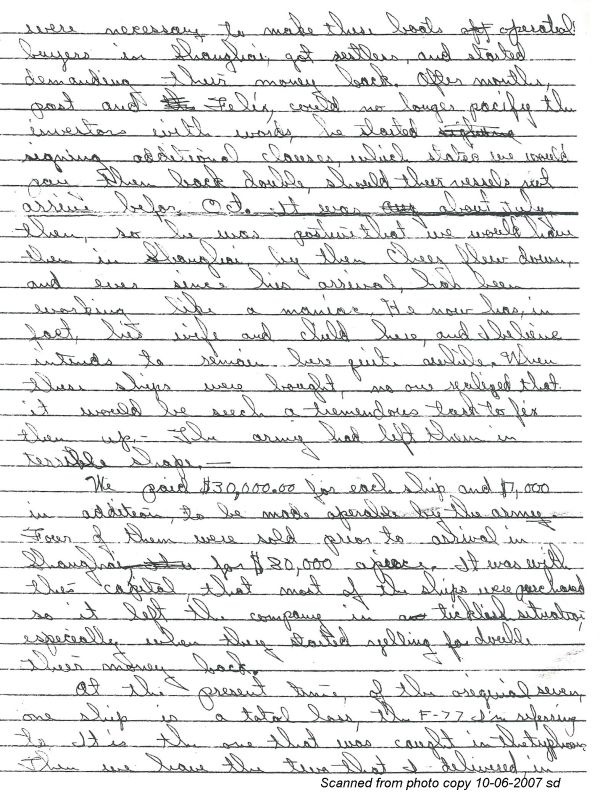 were necessary to make these boats operated
buyers in Shanghai, got restless, and started
demanding their money back. After months,
past and Felix, could no longer pacify the
investors with words, he started
signing additional clauses, which stated we would
pay them back double, should their vessels not
arrive before Oct. It was about July
then, so he was positive that we would have
them in Shanghai, by then flew down,
and ever since his arrival, has been
working like a maniac. He now has, in
fact, his wife and child here, and I believe
intends to remain here quite awhile. When
these ships were bought, no one realized that
it would be such a tremendous task to fix
them up. - The army had left them in
terrible shape. —
We paid $30,000.00 for each ship and $7,000
in addition, to be made operable by the army
Four of them were sold prior to arrival in
Shanghai for $80,000 apiece. It was with
this capital that most of the ships were purchased
so it left the company in a ticklish situation,
especially when they started yelling for double
their money back.
At the present time, of the original seven,
one ship is a total loss, the F-77 I'm refering
to. It is the one that was caught in the typhoon.
Then we have the two that I delivered in
Scanned from photo copy 10-06-2007 sd